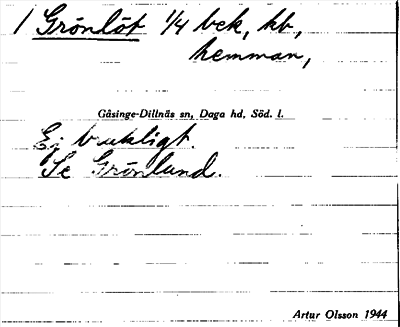 1 Grönlöt 1/4 bek, kb,
hemman,
Gåsinge-Dillnäs sn, Daga hd, Söd. l.
Ej brukligt.
Se Grönlund.
Artur Olsson 1944